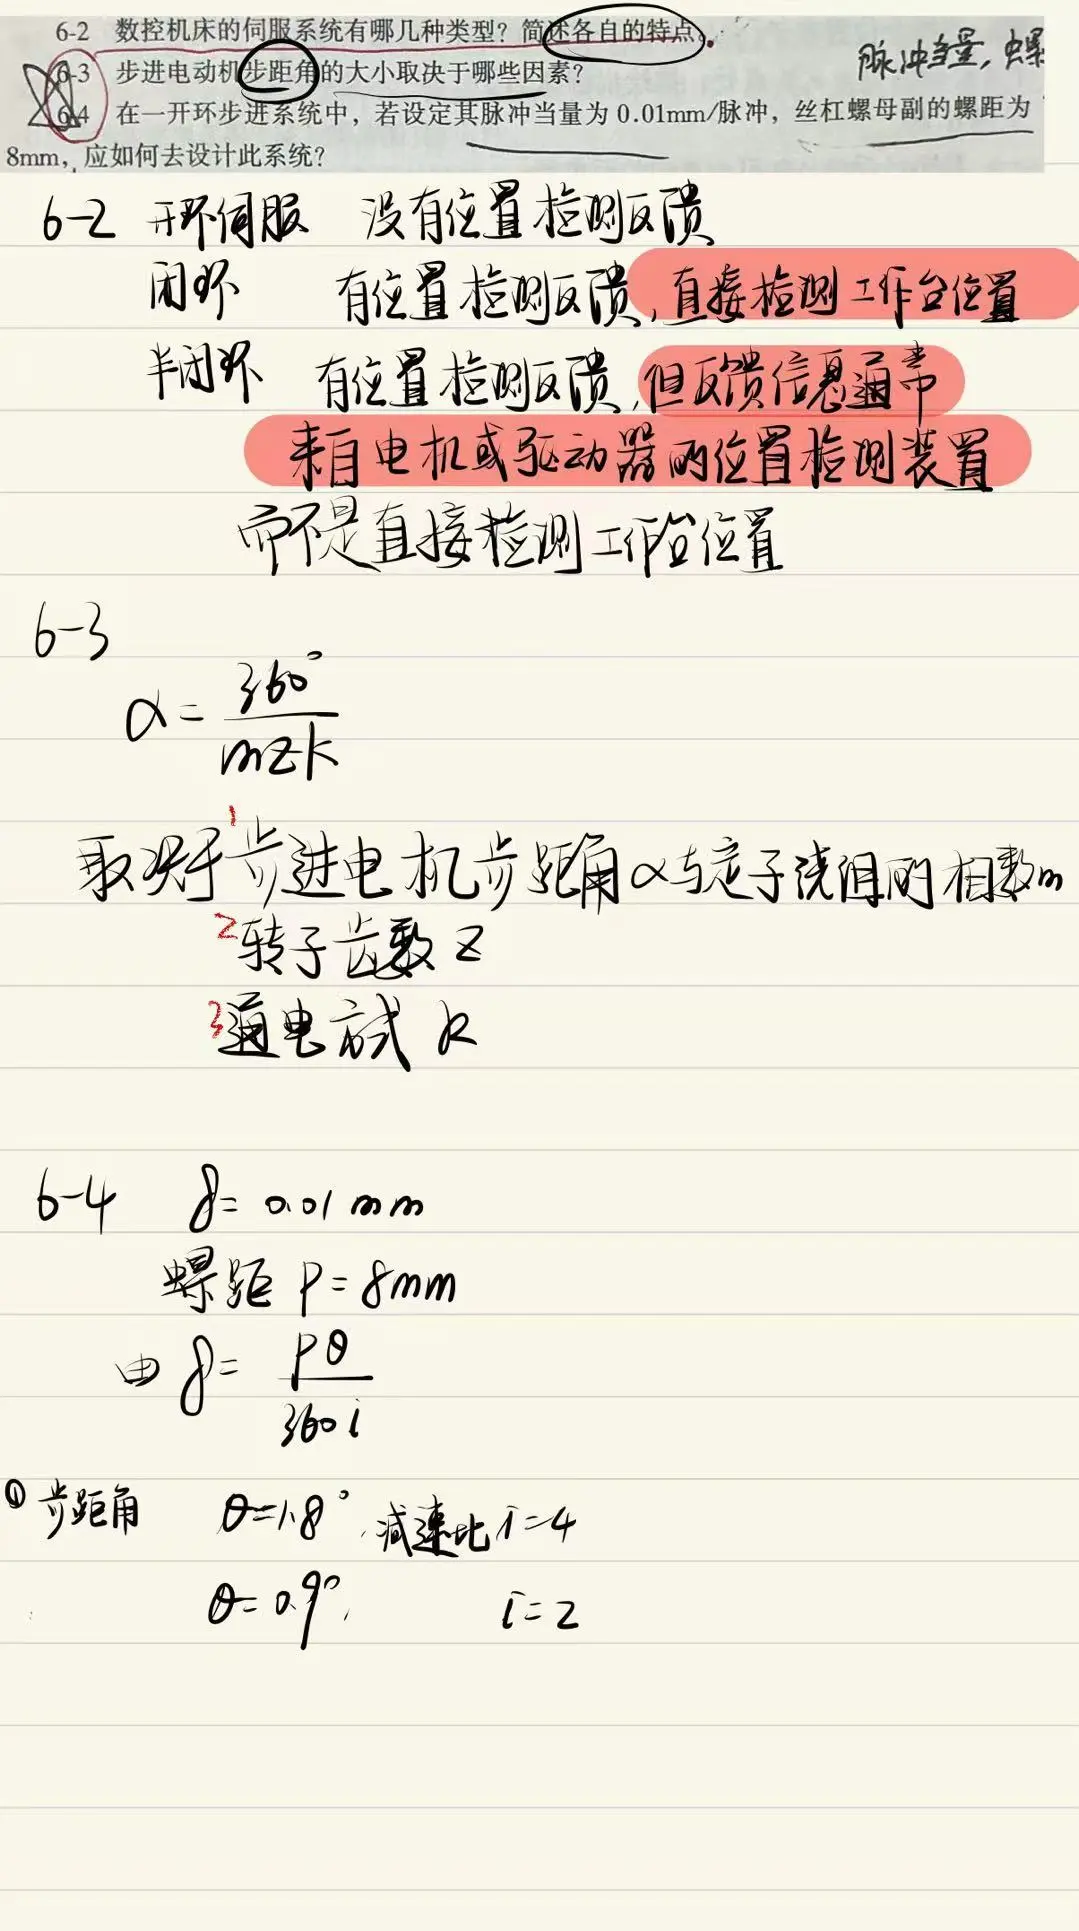 6-2 数控机床的伺服系统有哪几种类型？简述各自的特点。
脉冲当量，螺
6-3 步进电动机步距角的大小取决于哪些因素？
6-4 在一开环步进系统中，若设定其脉冲当量为 0.01mm/脉冲，丝杠螺母副的螺距为
8mm，应如何去设计此系统？
6-2 开环伺服 没有位置检测反馈
闭环 有位置检测反馈，直接检测工作台位置
半闭环 有位置检测反馈，但反馈信息通常
来自电机或驱动器的位置检测装置
而不是直接检测工作台位置
6-3
α = 360° / mzk
取决于 1 步进电机步距角α与定子绕组的相数m
2 转子齿数 z
3 通电方式 k
6-4 δ = 0.01 mm
螺距 P = 8mm
由 δ = Pθ / 360i
① 步距角 θ=1.8°，减速比 i=4
θ=0.9°， i=2